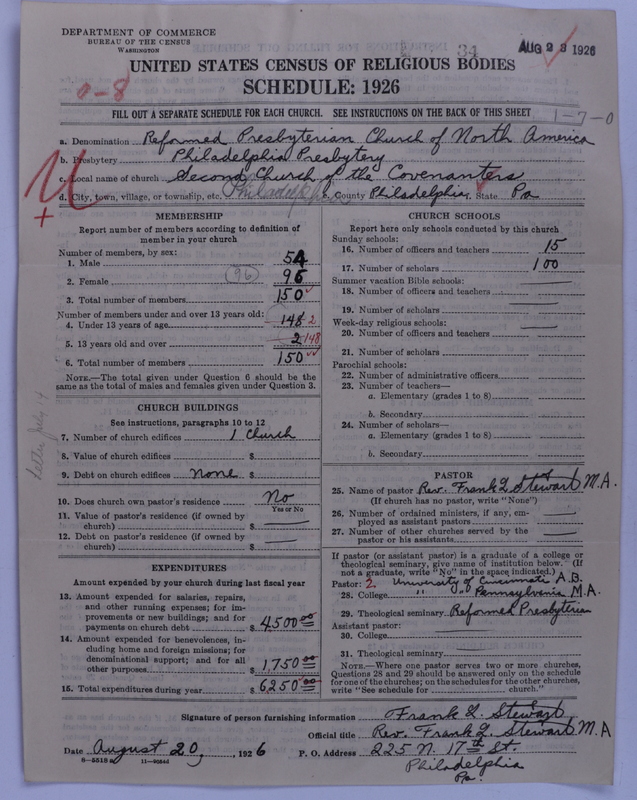 DEPARTMENT OF COMMERCE
BUREAU OF THE CENSUS
WASHINGTON
34
AUG 23 1926
UNITED STATES CENSUS OF RELIGIOUS BODIES
SCHEDULE: 1926
0-8
FILL OUT A SEPARATE SCHEDULE FOR EACH CHURCH. SEE INSTRUCTIONS ON THE BACK OF THIS SHEET
1-7-0
a. Denomination Reformed Presbyterian Church of North America
b. Presbytery Philadelphia Presbytery
c. Local name of church Second Church of the Covenanters
d. City, town, village, or township, etc. Philadelphia e. County Philadelphia f. State Pa
MEMBERSHIP
Report number of members according to definition of
member in your church
Number of members, by sex:
1. Male 54
2. Female (96) 96
3. Total number of members 150
Number of members under and over 13 years old:
4. Under 13 years of age 148 2
5. 13 years old and over 2 148
6. Total number of members 150
NOTE.—The total given under Question 6 should be the
same as the total of males and females given under Question 3.
CHURCH BUILDINGS
See instructions, paragraphs 10 to 12
7. Number of church edifices 1 Church
8. Value of church edifices $
9. Debt on church edifices None $
10. Does church own pastor's residence No
Yes or No
11. Value of pastor's residence (if owned by
church) $
12. Debt on pastor's residence (if owned by
church) $
EXPENDITURES
Amount expended by your church during last fiscal year
13. Amount expended for salaries, repairs,
and other running expenses; for im-
provements or new buildings; and for
payments on church debt $ 4,500 00
14. Amount expended for benevolences, in-
cluding home and foreign missions; for
denominational support; and for all
other purposes $ 1,750 00
15. Total expenditures during year $ 6250 00
CHURCH SCHOOLS
Report here only schools conducted by this church
Sunday schools:
16. Number of officers and teachers 15
17. Number of scholars 100
Summer vacation Bible schools:
18. Number of officers and teachers
19. Number of scholars
Week-day religious schools:
20. Number of officers and teachers
21. Number of scholars
Parochial schools:
22. Number of administrative officers
23. Number of teachers—
a. Elementary (grades 1 to 8)
b. Secondary
24. Number of scholars—
a. Elementary (grades 1 to 8)
b. Secondary
PASTOR
25. Name of pastor Rev. Frank L. Stewart M.A.
(If church has no pastor, write "None")
26. Number of ordained ministers, if any, em-
ployed as assistant pastors
27. Number of other churches served by the
pastor or his assistants
If pastor (or assistant pastor) is a graduate of a college or
theological seminary, give name of institution below. (If
not a graduate, write "No" in the space indicated.)
Pastor: 2. University of Cincinnati A.B.
28. College " " Pennsylvania M.A.
29. Theological seminary Reformed Presbyterian
Assistant pastor:
30. College
31. Theological seminary
NOTE.—Where one pastor serves two or more churches,
Questions 28 and 29 should be answered only on the schedule
for one of the churches; on the schedules for the other churches,
write "See schedule for church."
Signature of person furnishing information Frank L. Stewart
Official title Rev. Frank L. Stewart M.A
Date August 20, 1926 P. O. Address 225 N. 17th St.
Philadelphia
Pa.